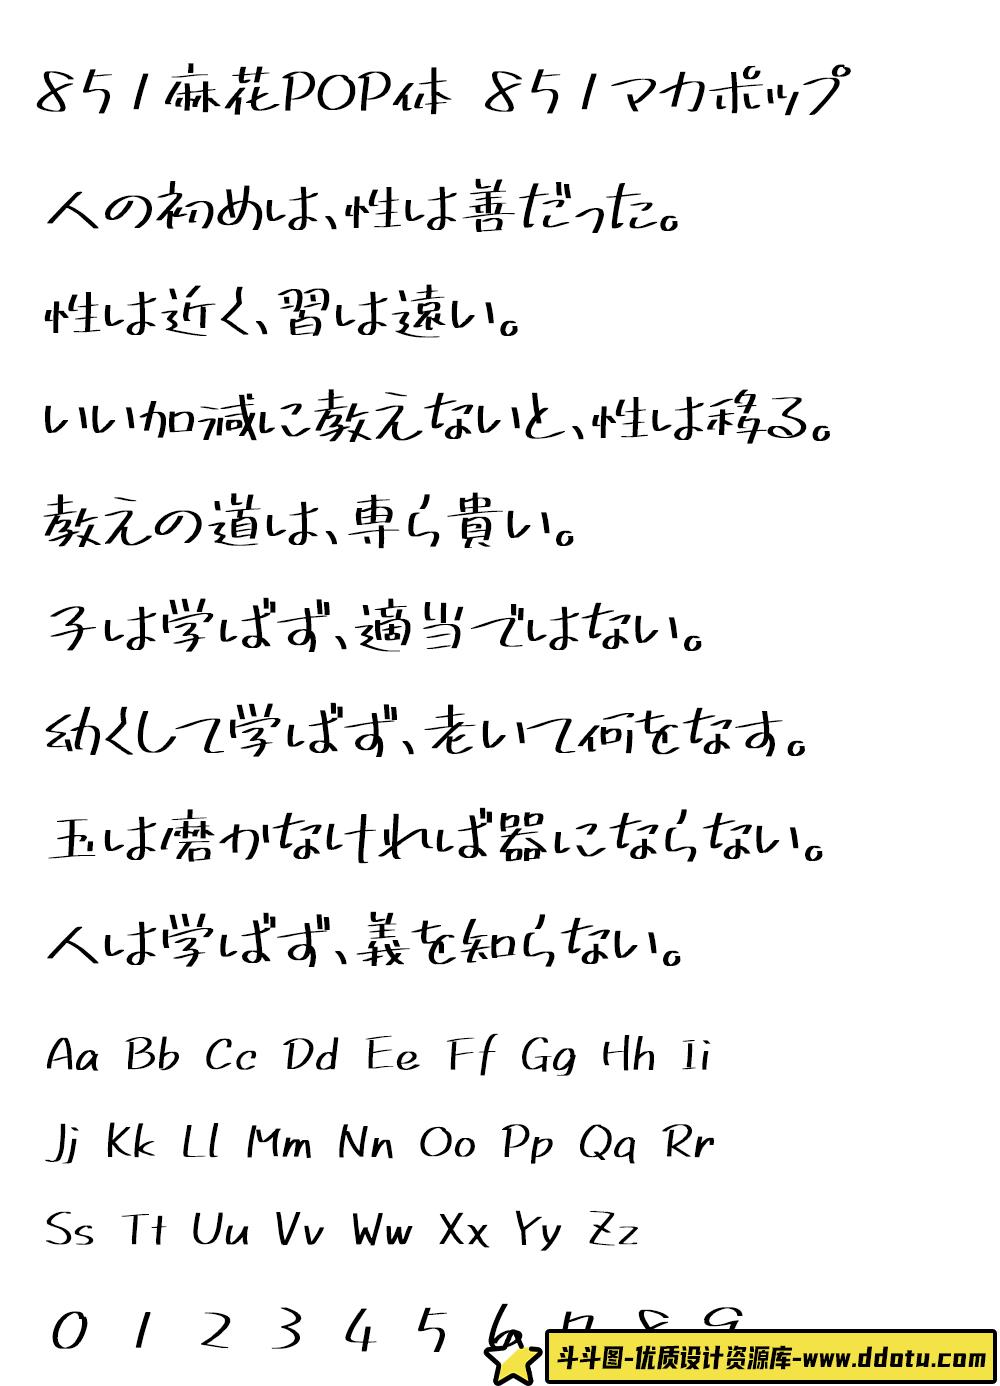 851麻花POP体 851マカポップ
人の初めは、性は善だった。
性は近く、習は遠い。
いい加減に教えないと、性は移る。
教えの道は、専ら貴い。
子は学ばず、適当ではない。
幼くして学ばず、老いて何をなす。
玉は磨かなければ器にならない。
人は学ばず、義を知らない。
Aa Bb Cc Dd Ee Ff Gg Hh Ii
Jj Kk Ll Mm Nn Oo Pp Qq Rr
Ss Tt Uu Vv Ww Xx Yy Zz
0 1 2 3 4 5 6 7 8 9
斗斗图-优质设计资源库-www.ddotu.com